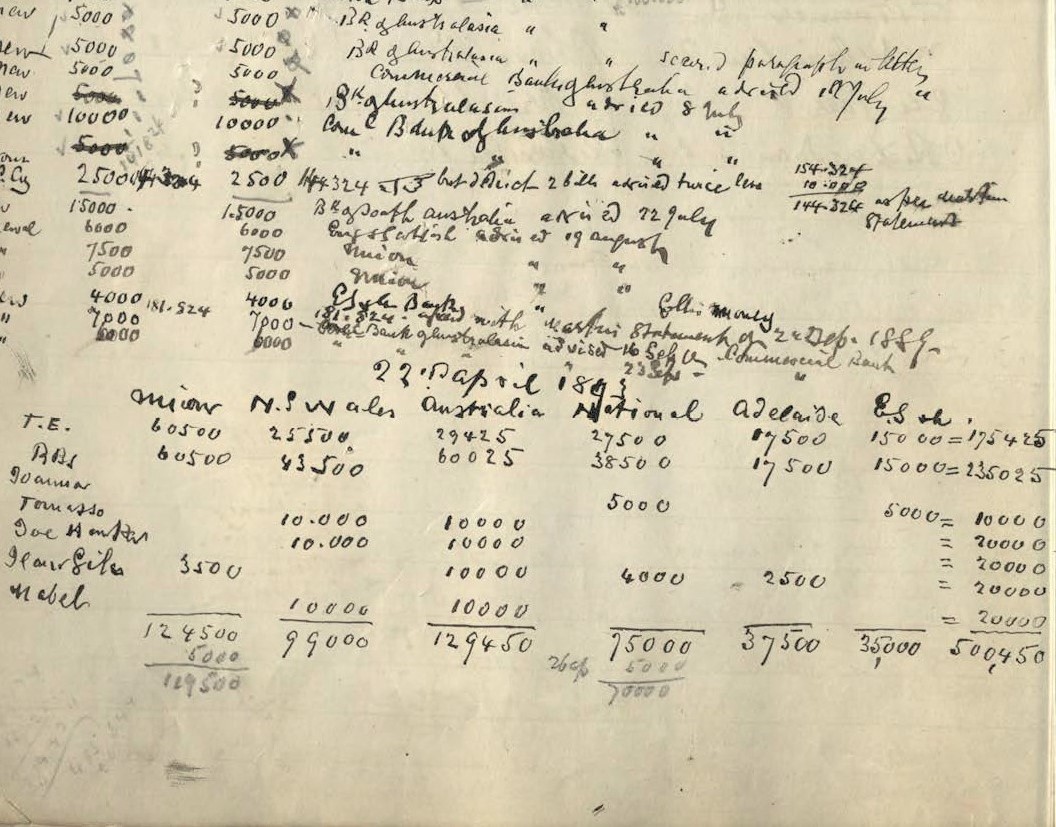 new 5000 5000 x Bk of Australasia " "
5000 5000 Bk of Australasia " " paragraph in letter
new 5000 5000 Commercial Bank of Australia advised 18 July "
5000 ? 5000 x Bk of Australasia advised 8 July
10000 10000 Com<sup>l</sup> Bank of Australia " "
5000 ? 5000 x " " " "
2500 144.324 2500 144.324 but deduct 2 bills advised twice less 154.324
10.000
144.324 as per statement
15000 . 15000 Bk of South Australia advised 22 July
6000 6000 Eng Scottish advised 19 August
7500 7500 Union " "
5000 5000 Union " "
4000 181.824 4000 E S & Ch Bank "
" 7000 7000 181.824 agreed with Martin's Statement of 24 Sep. 1889
" 6000 6000 Bank of Australasia advised 16 Sep Commercial Bank
" " 23 Sep "
22 April 1893
Union N.S Wales Australia National Adelaide E.S ch.
T.E. 60500 25500 29425 27500 17500 15000 = 175425
BBs 60500 43.500 60025 38500 17500 15000 = 235025
Joanna 5000 5000 = 10000
Tomasso 10.000 10000 = 20000
10.000 10000 = 20000
3500 10000 4000 2500 = 20000
Mabel 10000 10000 = 20000
124500 99000 129450 75000 37500 35,000 500,450
5000 5000
119500 70000